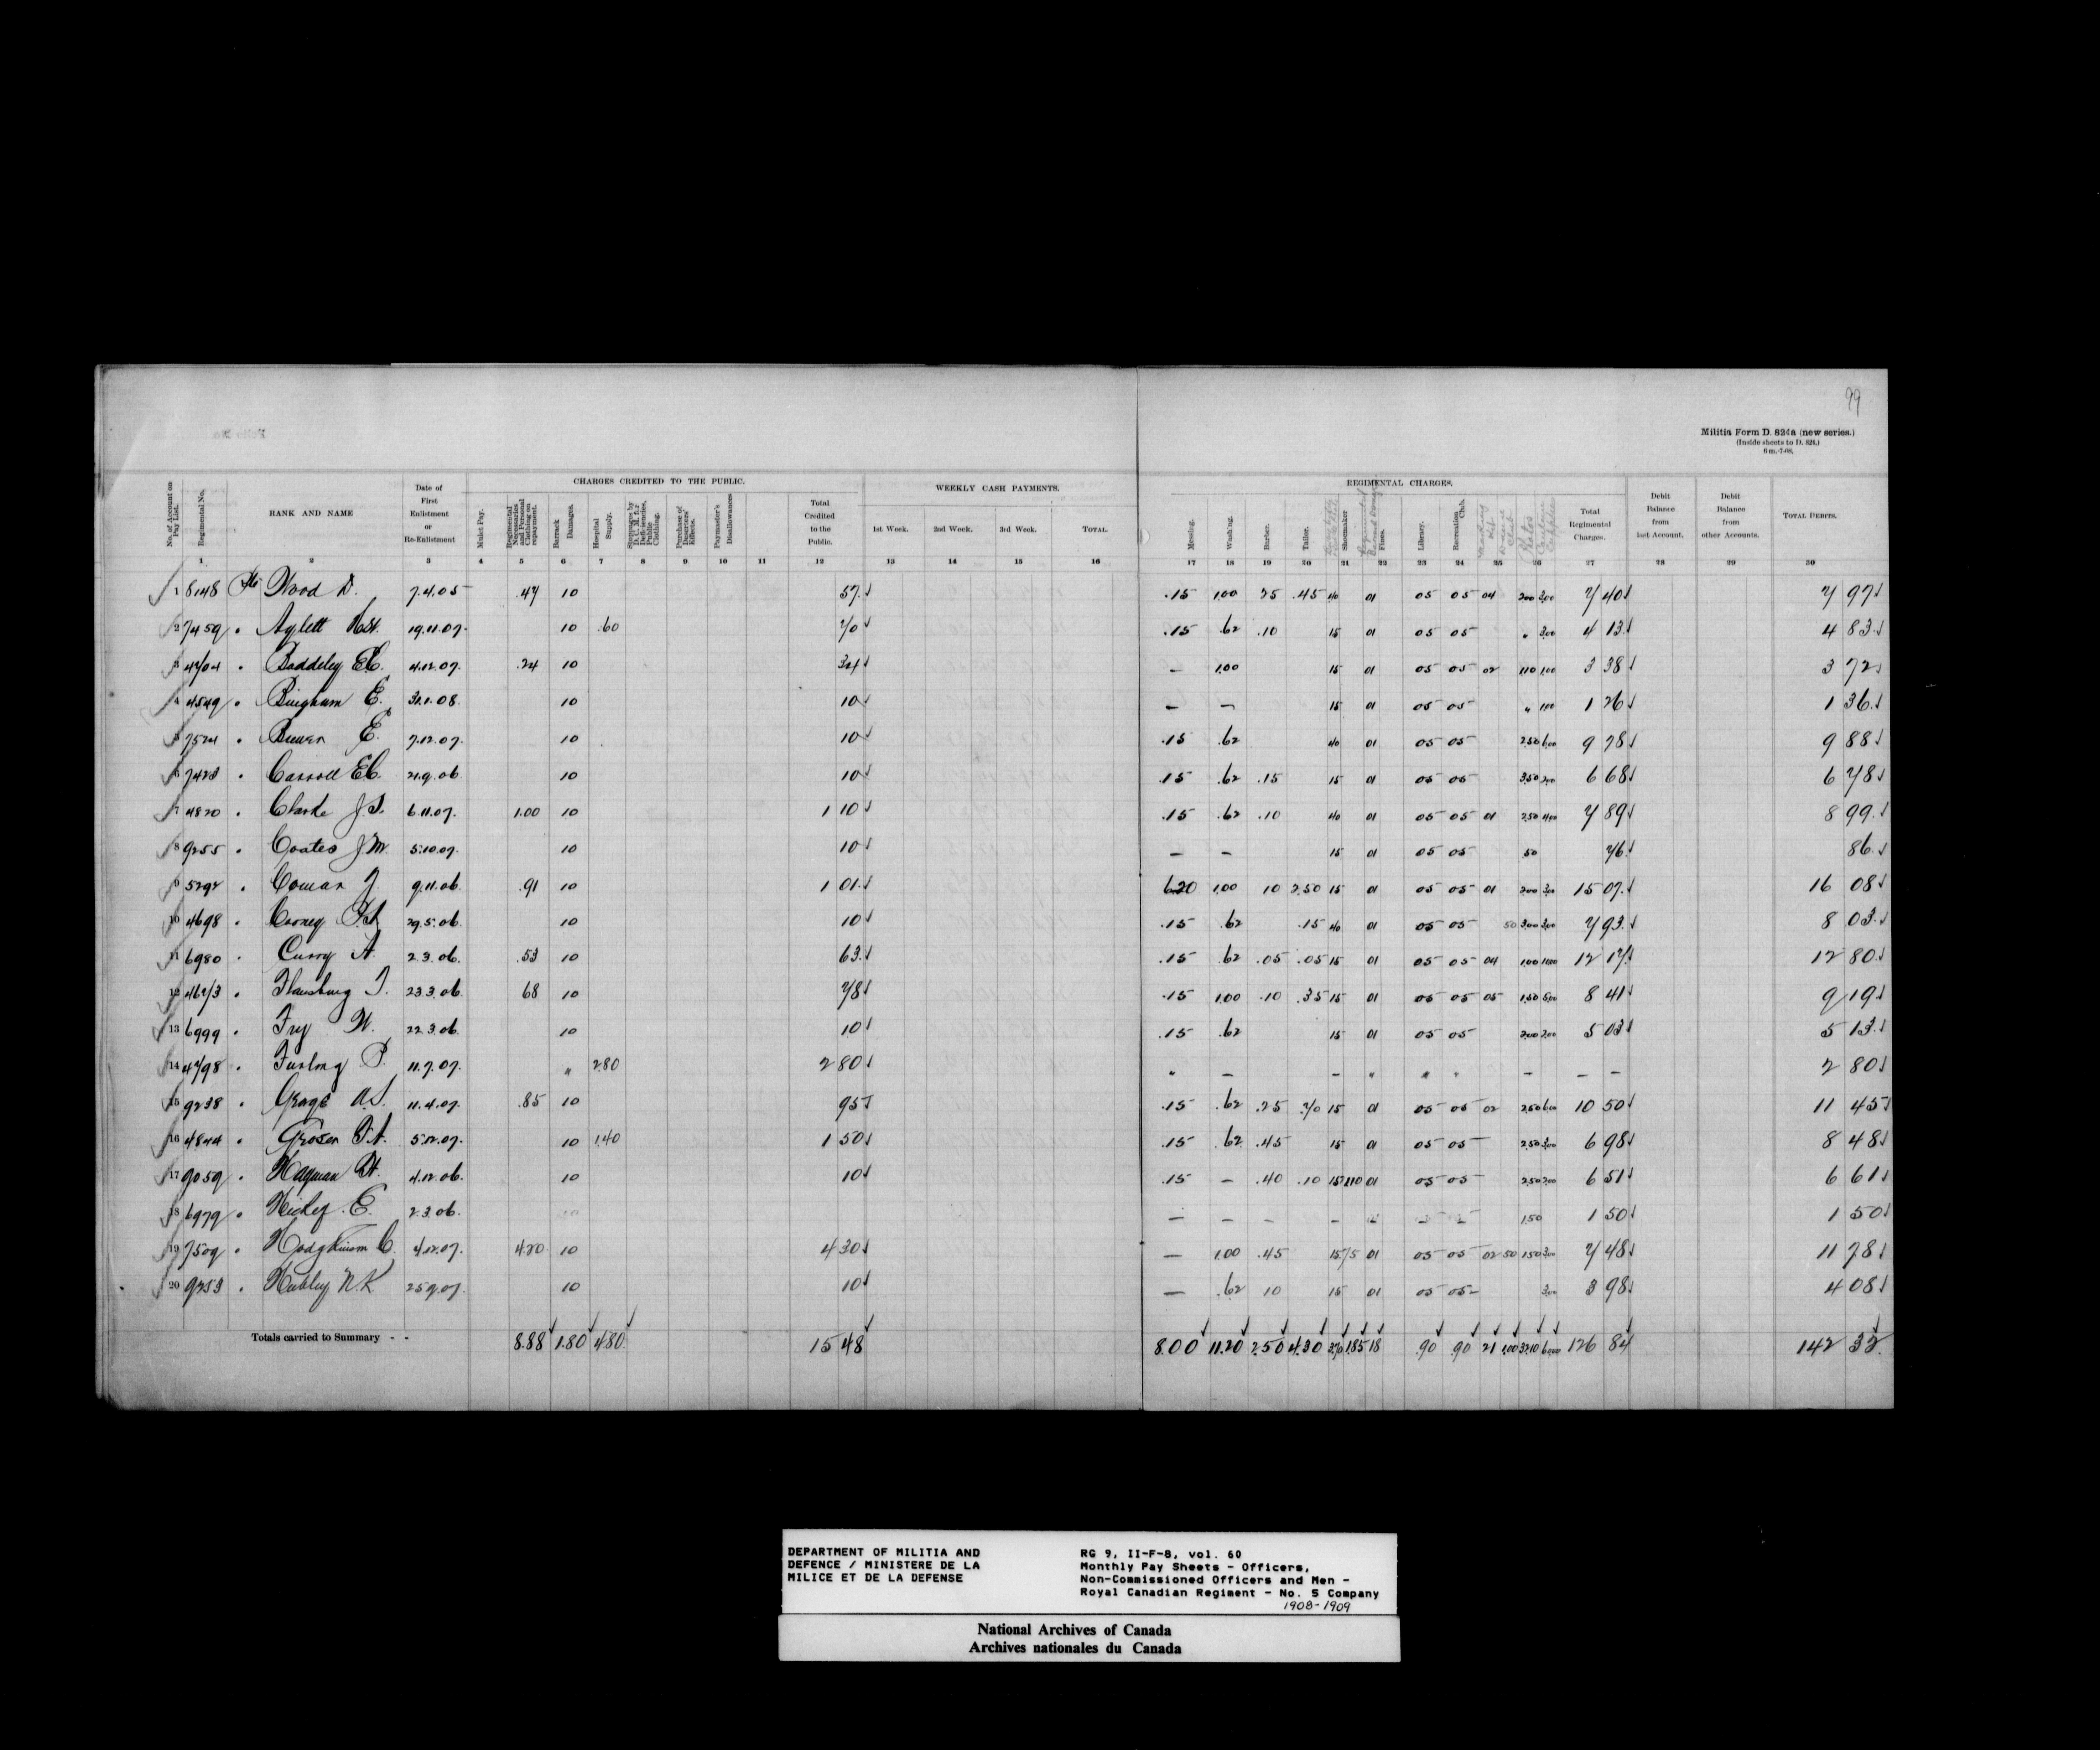 99
Militia Form D. 824a (new series.)
(Inside sheets to D. 824.)
6 m.-7-08.
CHARGES CREDITED TO THE PUBLIC. WEEKLY CASH PAYMENTS. REGIMENTAL CHARGES.
No. of Account on Pay List. Regimental No. RANK AND NAME Date of First Enlistment or Re-Enlistment Mulct Pay. Regimental Necessaries and Personal Clothing on repayment. Barrack Damages. Hospital Supply. Stoppages by D.C.M. for Deficiencies, Public Clothing. Purchase of Deserters' Effects. Paymaster's Disallowances Total Credited to the Public. 1st Week. 2nd Week. 3rd Week. TOTAL. Messing. Wash'ng. Barber. Tailor. Shoemaker Fines. Library. Recreation Club. Total Regimental Charges. Debit Balance from last Account. Debit Balance from other Accounts. TOTAL DEBITS.
1 2 3 4 5 6 7 8 9 10 11 12 13 14 15 16 17 18 19 20 21 22 23 24 25 26 27 28 29 30
1 8148 Pte Wood D. 7.4.05 .47 10 57 .15 1.00 25 .45 40 01 05 05 04 200 3.00 7 40 7 97
2 7459 " Aylett 19.11.07. 10 .60 70 .15 .62 .10 15 01 05 05 " 3.00 4 13 4 83
3 4704 " Baddeley E.C. 4.12.07. .24 10 34 — 1.00 15 01 05 05 02 1.10 1.00 3 38 3 72
4 4549 " Bingham E. 31.1.08. 10 10 — — 15 01 05 05 " 1.00 1 26 1 36
5 7524 " E. 7.12.07. 10 10 .15 .62 40 01 05 05 2.50 6.00 9 78 9 88
6 7423 " Carroll E.C. 21.9.06. 10 10 .15 .62 .15 15 01 05 05 3.50 2.00 6 68 6 78
7 4820 " Clarke J.S. 6.11.07. 1.00 10 1 10 .15 .62 .10 40 01 05 05 01 2.50 4.00 7 89 8 99
8 9255 " Coates J.M. 5.10.07. 10 10 — — 15 01 05 05 50 76 86
9 5292 " J. 9.11.06. .91 10 1 01 6.20 1.00 10 2.50 15 01 05 05 01 2.00 3.00 15 07 16 08
10 4698 " Cooney 29.5.06. 10 10 .15 .62 .15 40 01 05 05 50 3.00 3.00 7 93 8 03
11 6980 " Curry A. 2.3.06. .53 10 63 .15 .62 .05 .05 15 01 05 05 04 1.00 10.00 12 17 12 80
12 4673 " 23.3.06. 68 10 78 .15 1.00 .10 .35 15 01 05 05 05 1.50 5.00 8 41 9 19
13 6999 " Fry W. 22.3.06. 10 10 .15 .62 15 01 05 05 2.00 2.00 5 03 5 13
14 4798 " Furlong P. 11.7.07. " 2.80 2 80 " — — " " " — — — 2 80
15 9238 " A.S. 11.4.07. .85 10 95 .15 .62 .25 .70 15 01 05 05 02 2.50 6.00 10 50 11 45
16 4844 " 5.12.07. 10 1.40 1 50 .15 .62 .45 15 01 05 05 2.50 3.00 6 98 8 48
17 9059 " Hayman 4.12.06. 10 10 .15 — .40 .10 15 1.10 01 05 05 2.50 2.00 6 51 6 61
18 6979 " Hickey E. 2.3.06. — — — — 1.50 1 50 1 50
19 7509 " C. 4.12.07. 4.20 10 4 30 — 1.00 .45 15 75 01 05 05 02 50 1.50 3.00 7 48 11 78
20 9253 " Hubley N.K. 25.9.07. 10 10 — .62 10 15 01 05 05 3.00 3 98 4 08
Totals carried to Summary - - 8.88 1.80 4.80 15 48 8.00 11.20 2.50 4.30 3.70 1.85 18 .90 .90 21 1.00 32.10 60.00 126 84 142 32
DEPARTMENT OF MILITIA AND
DEFENCE / MINISTERE DE LA
MILICE ET DE LA DEFENSE
RG 9, II-F-8, vol. 60
Monthly Pay Sheets - Officers,
Non-Commissioned Officers and Men -
Royal Canadian Regiment - No. 5 Company
1908-1909
National Archives of Canada
Archives nationales du Canada